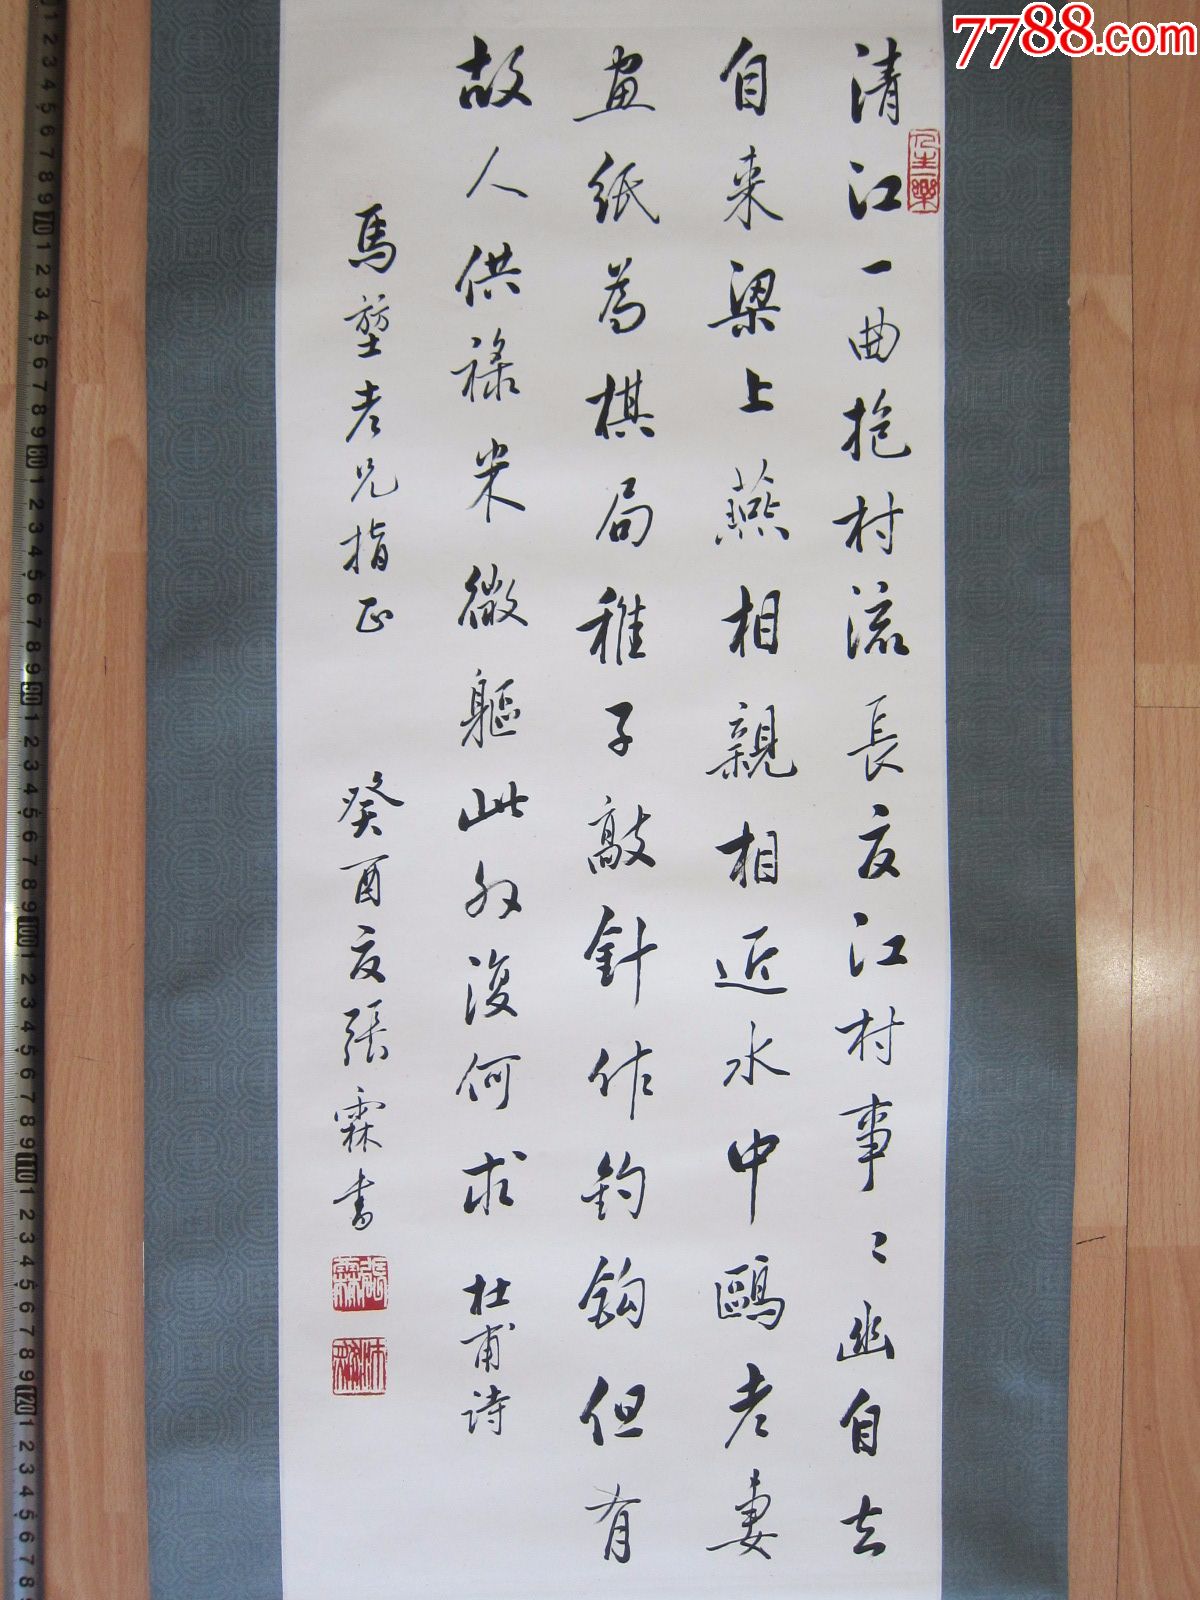 7788.com
人生一樂
清江一曲抱村流長夏江村事〻幽自去
自来梁上燕相親相近水中鷗老妻
画紙為棋局稚子敲針作釣鈎但有
故人供祿米微軀此外復何求 杜甫詩
馬堃老兄指正 癸酉夏張霖書
張霖